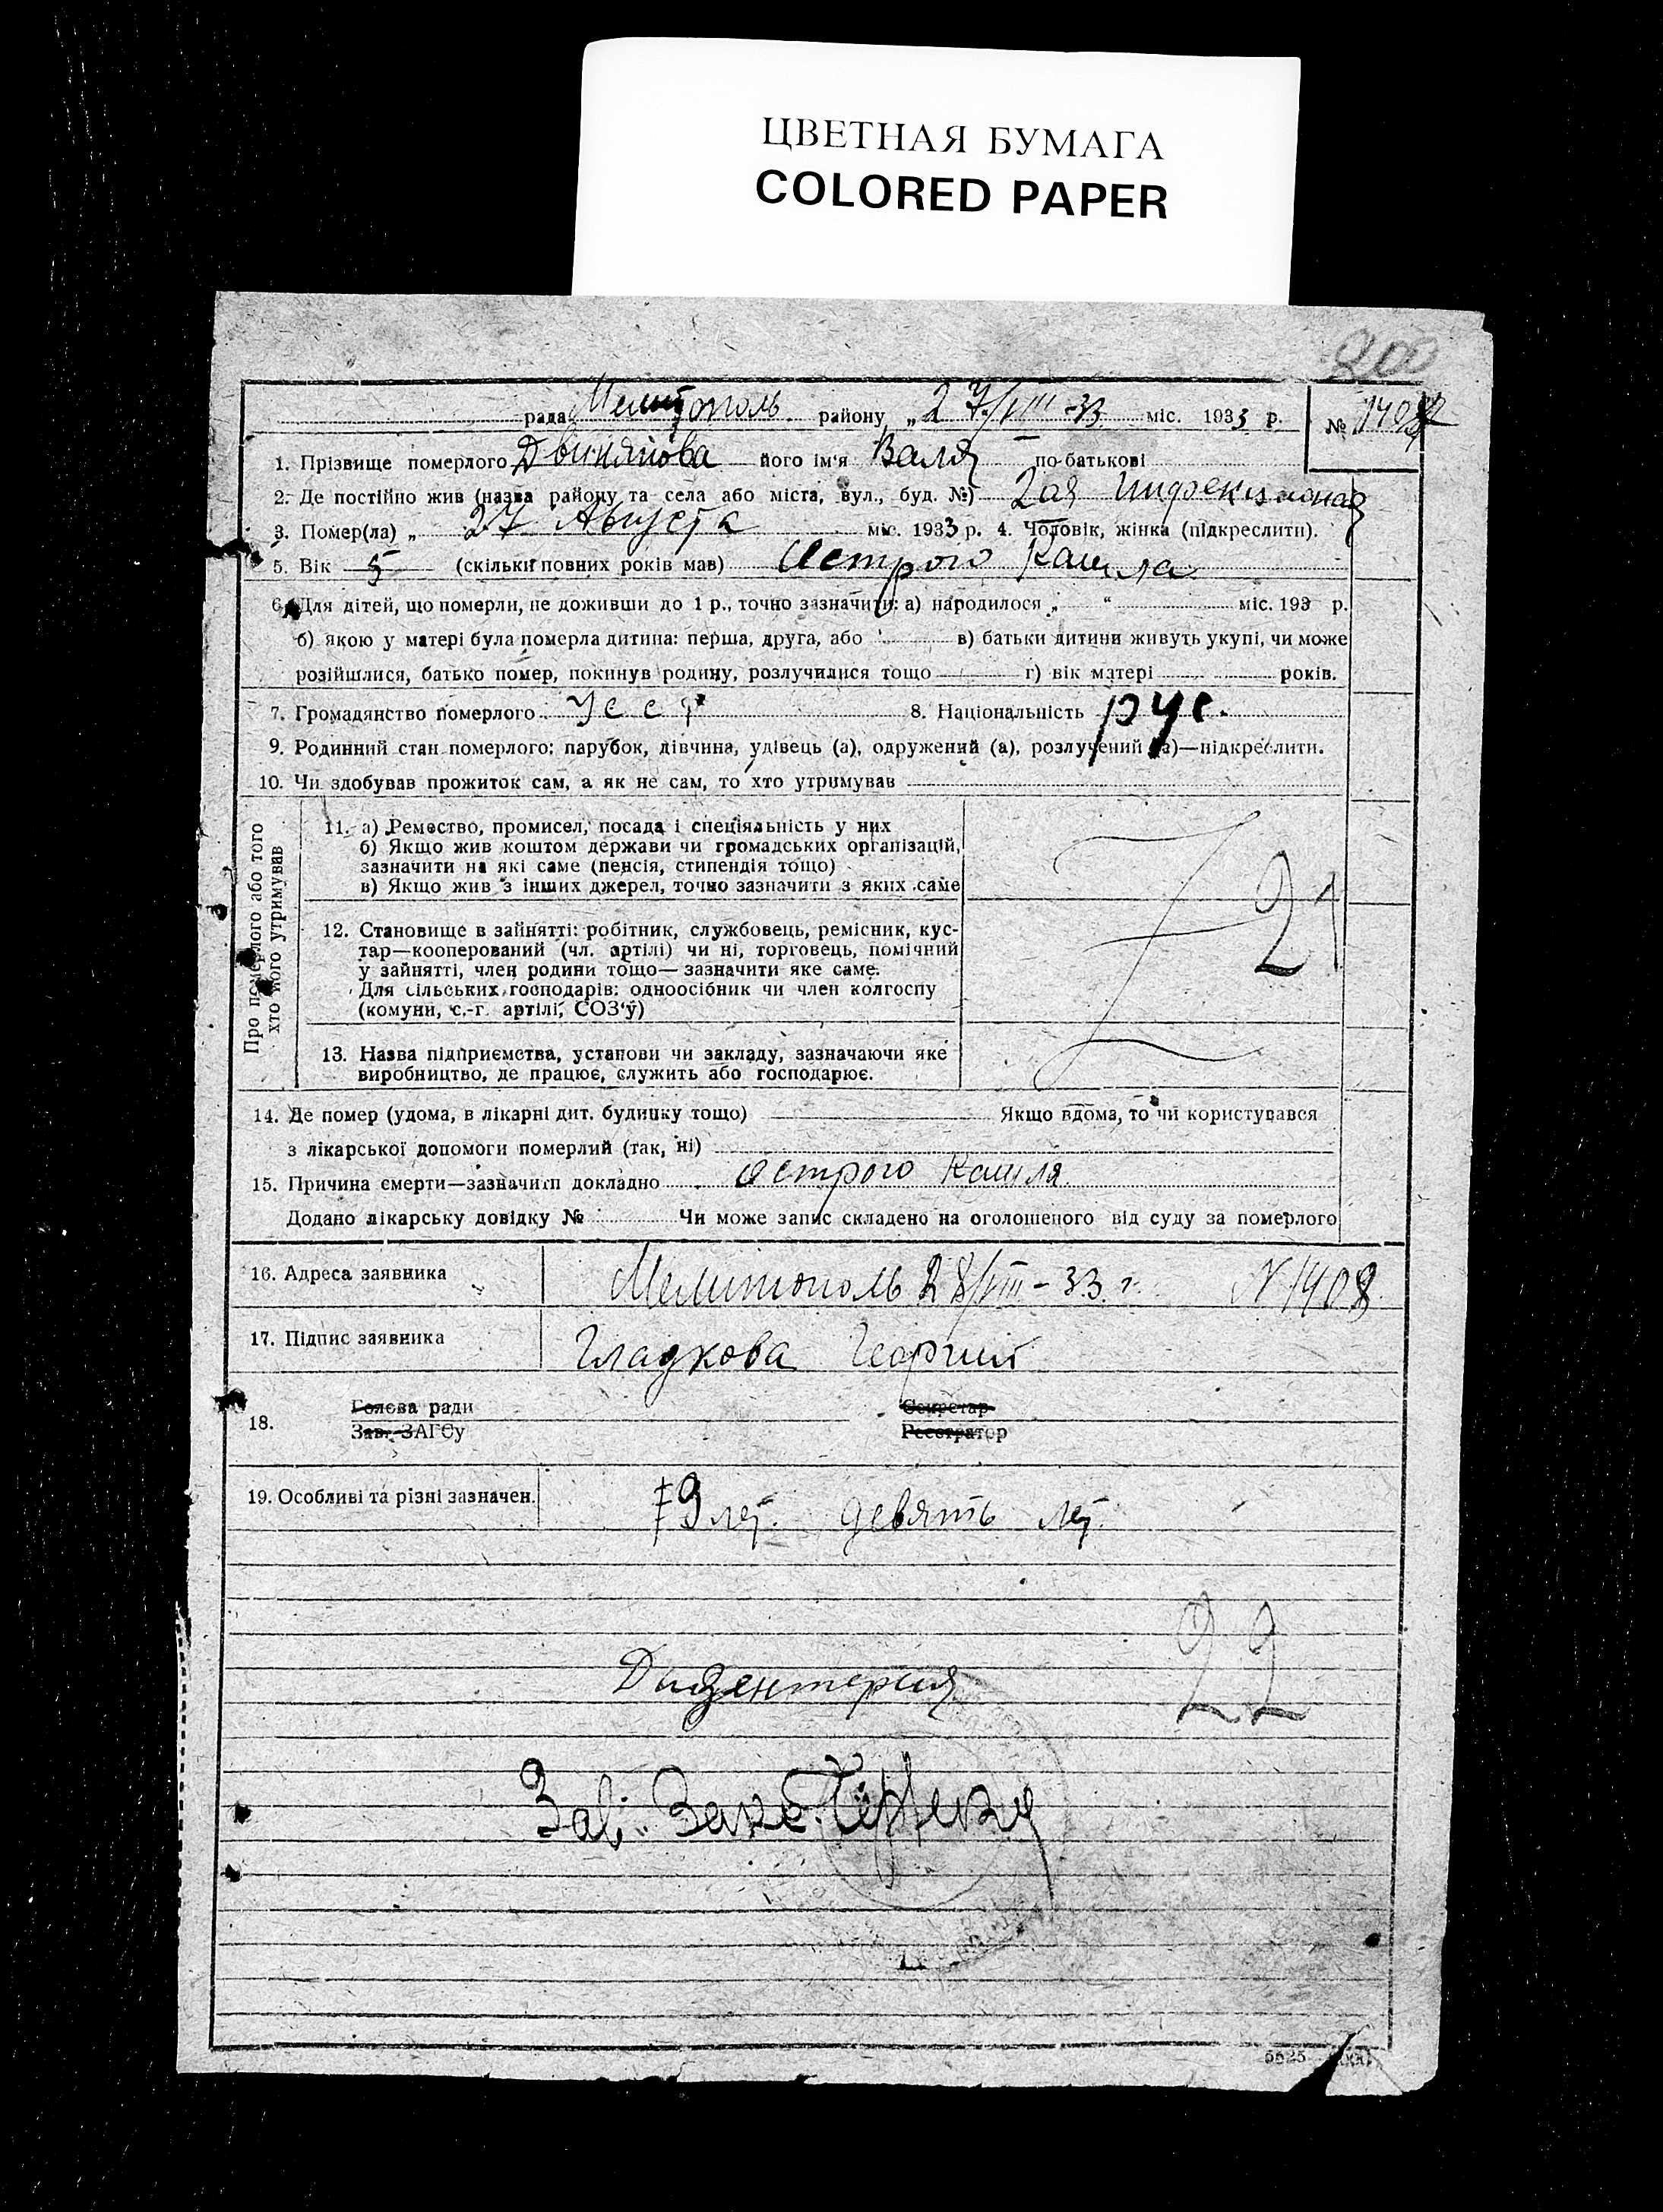 ЦВЕТНАЯ БУМАГА
COLORED PAPER
200
рада Мелитополь району „ 27/VIII-33 міс. 1933 р. №
1. Прізвище померлого його ім'я Валя по-батькові
2. Де постійно жив (назва району та села або міста, вул., буд. №) 2ая
3. Помер(ла) „ 27 Августа міс. 1933 р. 4. Чоловік, жінка (підкреслити).
5. Вік 5 (скільки повних років мав) Острого Кашля
6. Для дітей, що померли, не доживши до 1 р., точно зазначити: а) народилося „ “ міс. 193 р.
б) якою у матері була померла дитина: перша, друга, або в) батьки дитини живуть укупі, чи може
розійшлися, батько помер, покинув родину, розлучилися тощо г) вік матері років.
7. Громадянство померлого 8. Національність рус.
9. Родинний стан померлого: парубок, дівчина, удівець (а), одружений (а), розлучений (а)—підкреслити.
10. Чи здобував прожиток сам, а як не сам, то хто утримував
Про померлого або того
хто його утримував
11. а) Ремество, промисел, посада і спеціяльність у них
б) Якщо жив коштом держави чи громадських організацій,
зазначити на які саме (пенсія, стипендія тощо)
в) Якщо жив з інших джерел, точно зазначити з яких саме
21
12. Становище в зайнятті: робітник, службовець, ремісник, кус-
тар—кооперований (чл. артілі) чи ні, торговець, помічний
у зайнятті, член родини тощо— зазначити яке саме.
Для сільських господарів: одноосібник чи член колгоспу
(комуни, с.-г. артілі, СОЗ'у)
13. Назва підприємства, установи чи закладу, зазначаючи яке
виробництво, де працює, служить або господарює.
14. Де помер (удома, в лікарні дит. будинку тощо) Якщо вдома, то чи користувався
з лікарської допомоги померлий (так, ні)
15. Причина смерти—зазначити докладно Острого Кашля
Додано лікарську довідку № Чи може запис складено на оголошеного від суду за померлого
16. Адреса заявника Мелитополь 28/VIII-33 г. N 1408
17. Підпис заявника Гладкова Георгий
18. Голова ради Секретар
Зав. ЗАГСу Реєстратор
19. Особливі та різні зазначен. 9 лет. девять лет.
22
Дизентерия
Зав.
5525